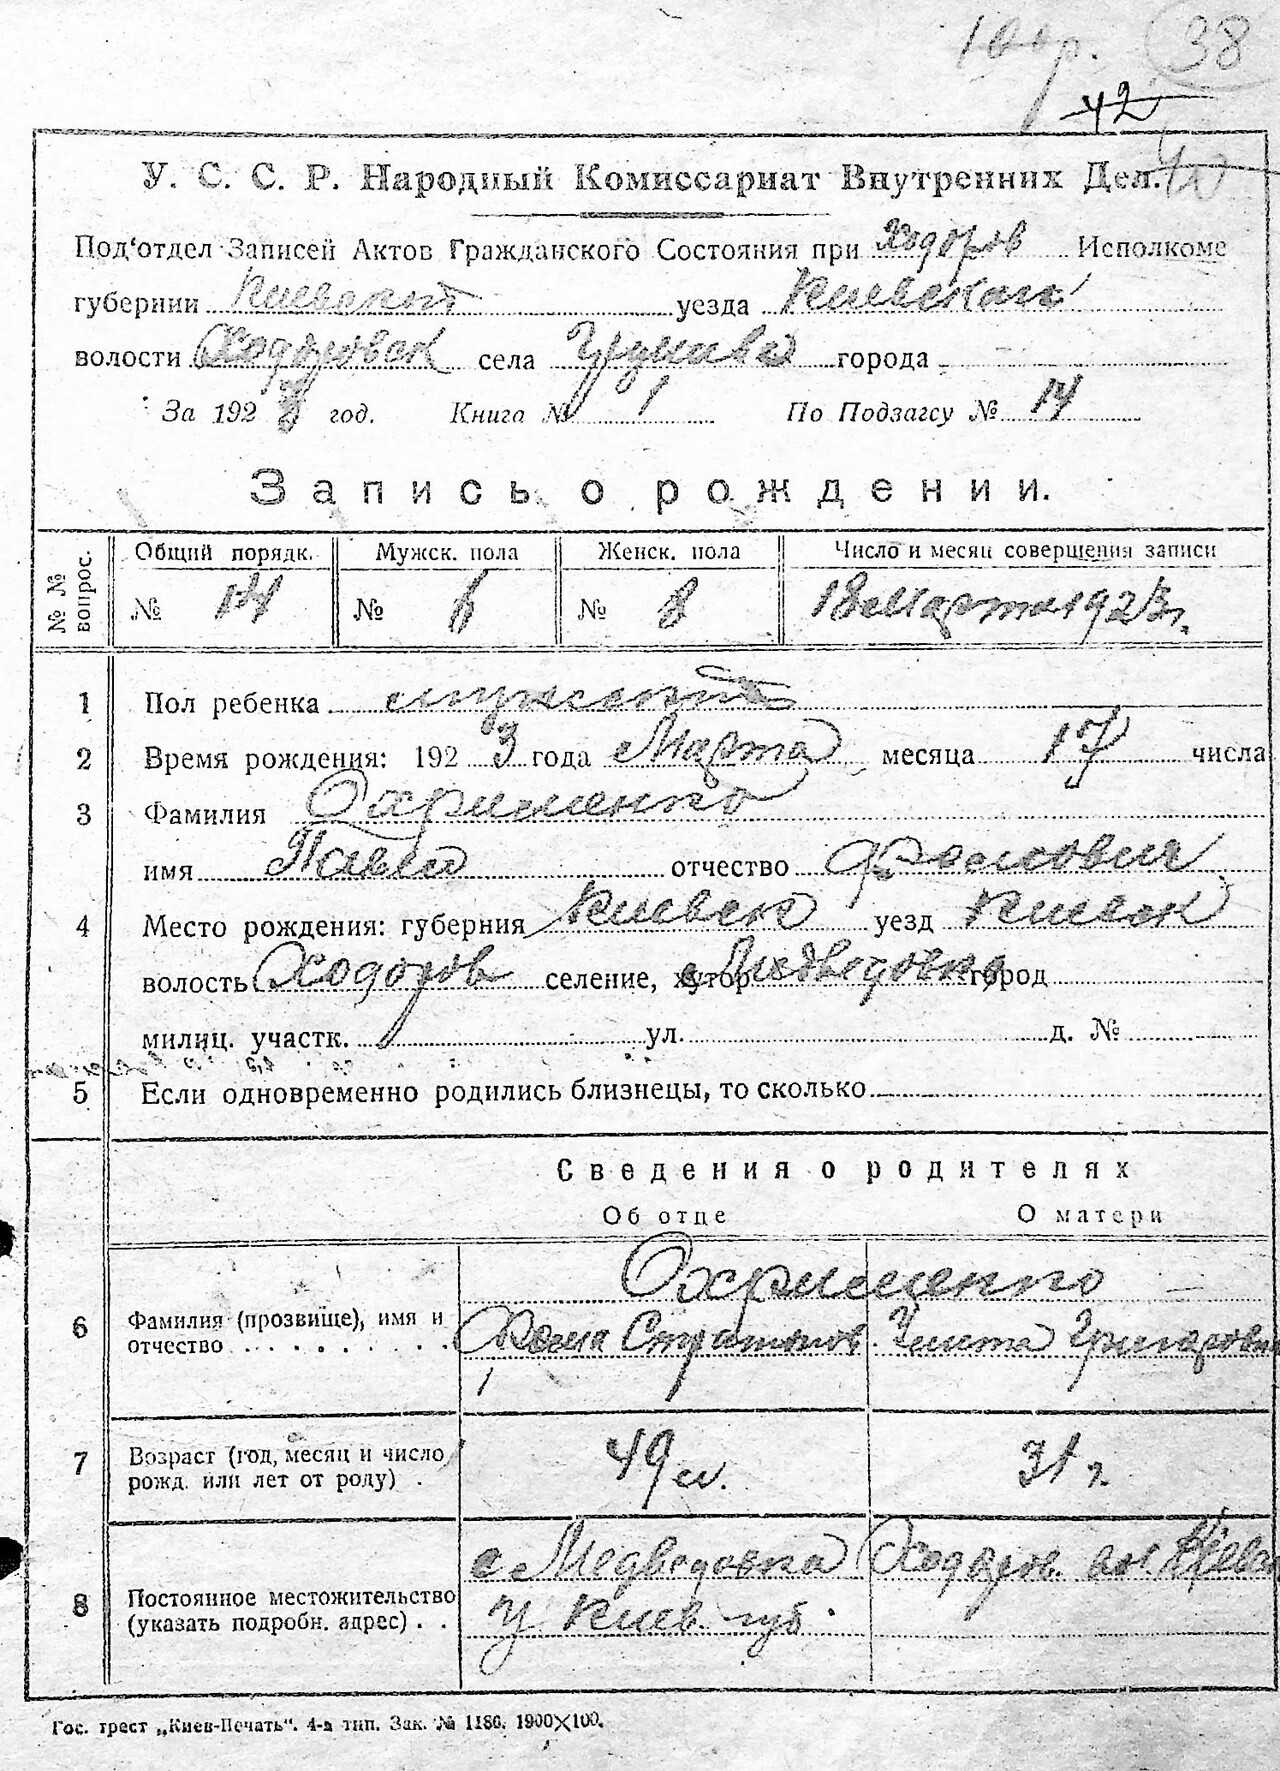 100р. 38
42
У. С. С. Р. Народный Комиссариат Внутренних Дел.
Под'отдел Записей Актов Гражданского Состояния при Ходоров Исполкоме
губернии Киевской уезда Киевского
волости Ходоровск села города
За 1923 год. Книга № 1 По Подзагсу № 14
Запись о рождении.
№ № вопрос. Общий порядк. Мужск. пола Женск. пола Число и месяц совершения записи
№ 14 № 6 № 8 18 Марта 1923 г.
1 Пол ребенка мужской
2 Время рождения: 1923 года Марта месяца 17 числа
3 Фамилия Охрименко
имя Павел отчество Фомович
4 Место рождения: губерния Киевск уезд Киевск
волость Ходоров селение, хутор Медведовка город
милиц. участк. ул. д. №
5 Если одновременно родились близнецы, то сколько
Сведения о родителях
Об отце О матери
Охрименко
6 Фамилия (прозвище), имя и Фома Стратонов. Григоровна
отчество . . . . . . . . .
7 Возраст (год, месяц и число 49 л. 31 г.
рожд. или лет от роду) .
с Медведовка Ходоров. вол. Киевск
8 Постоянное местожительство у Киев. губ.
(указать подробн. адрес) . .
Гос. трест „Киев-Печать". 4-я тип. Зак. № 1186. 1900×100.